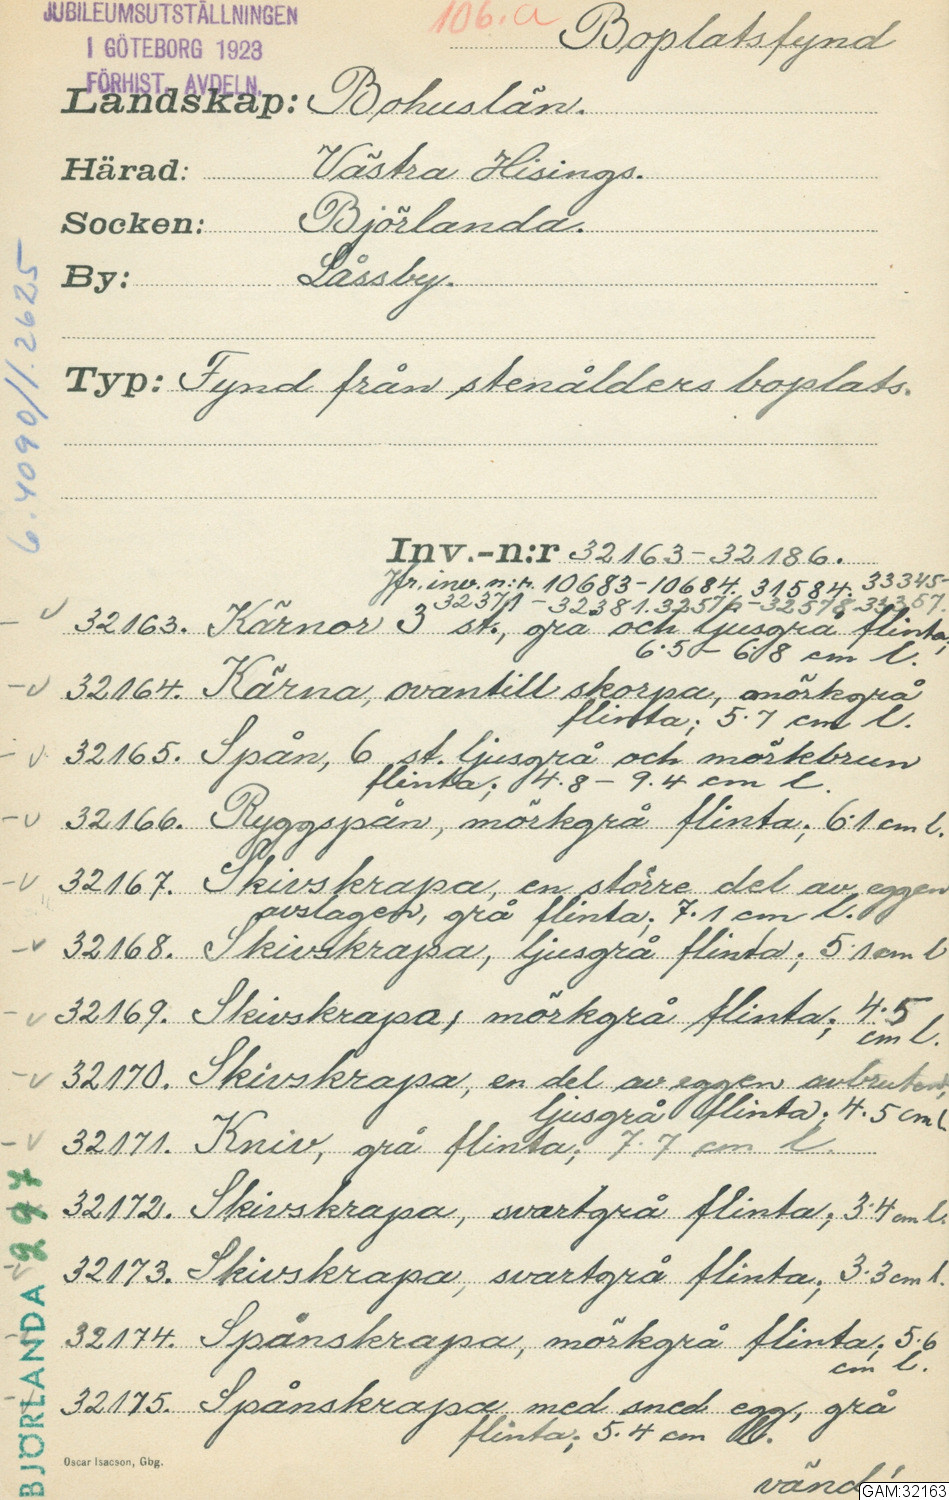 JUBILEUMSUTSTÄLLNINGEN
I GÖTEBORG 1923
FÖRHIST. AVDELN.
106.a
Boplatsfynd
Landskap: Bohuslän.
Härad: Västra Hisings.
Socken: Björlanda.
By: Låssby.
6.4090//.2625
Typ: Fynd från stenålders boplats.
Inv.-n:r 32163-32186.
Jfr. inv. n:r. 10683-10684. 31584. 33345-
32371-32381. 32574-32578. 33357.
32163. Kärnor 3 st., grå och ljusgrå flinta;
6.5 - 6.8 cm l.
32164. Kärna, ovantill skorpa, mörkgrå
flinta; 5.7 cm l.
32165. Spån, 6 st. ljusgrå och mörkbrun
flinta; 4.8 - 9.4 cm l.
32166. Ryggspån, mörkgrå flinta; 6.1 cm l.
32167. Skivskrapa, en större del av eggen
avslagen, grå flinta; 7.1 cm l.
32168. Skivskrapa, ljusgrå flinta; 5.1 cm l
32169. Skivskrapa, mörkgrå flinta; 4.5
cm l.
32170. Skivskrapa, en del av eggen avbruten,
ljusgrå flinta; 4.5 cm l
32171. Kniv, grå flinta; 7.7 cm l.
32172. Skivskrapa, svartgrå flinta; 3.4 cm l.
32173. Skivskrapa, svartgrå flinta; 3.3 cm l.
32174. Spånskrapa, mörkgrå flinta; 5.6
cm l.
32175. Spånskrapa med sned egg, grå
flinta; 5.4 cm l.
BJÖRLANDA 297
Oscar Isacson, Gbg.
vänd!
GAM:32163